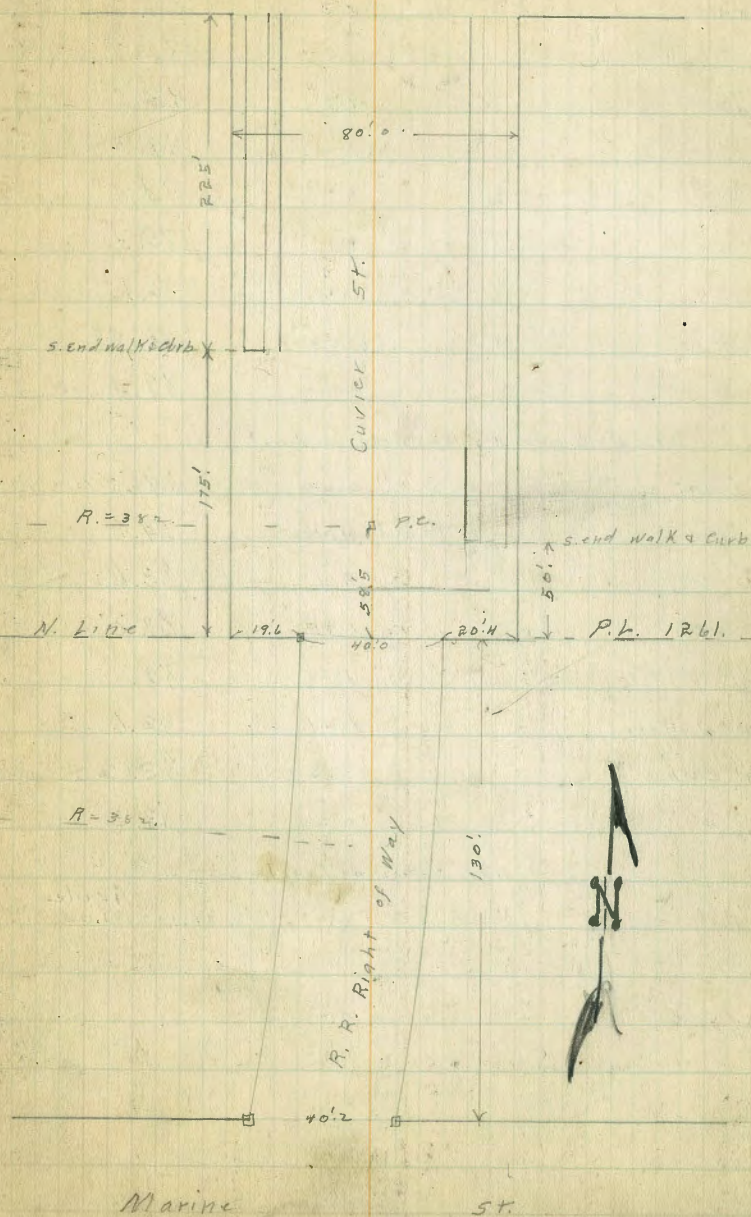 80'.0
225'
Cuvier St.
S. End walk & Curb
175'
R. = 382
P.C.
S. end walk & Curb
58'.5
50'.
N. Line
19.6
40'.0
20'.4
P.L. 1261.
R = 382.
130'.
R. R. Right of Way
N
40'.2
Marine St.